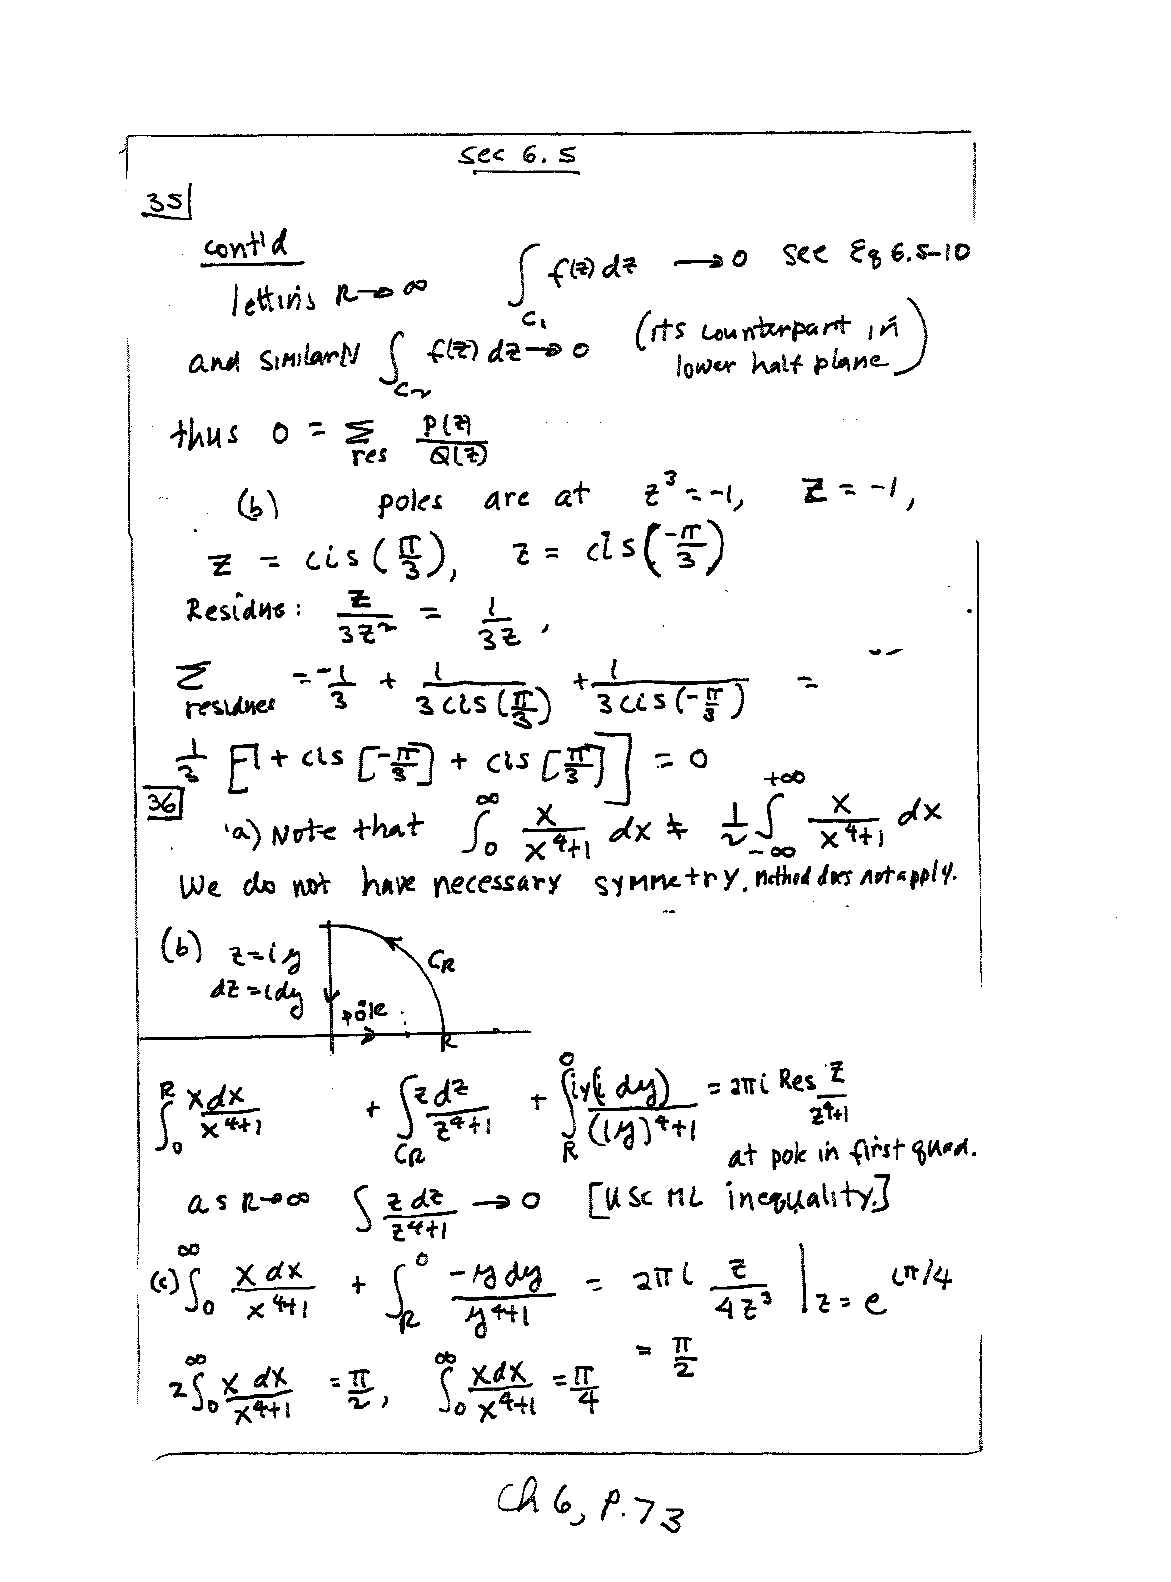 Sec 6.5
35
cont'd
letting R→∞ ∫_{C₁} f(z) dz → 0 see Eq 6.5-10
and similarly ∫_{C₂} f(z) dz → 0 (its counterpart in lower half plane)
thus 0 = Σ_{res} P(z)/Q(z)
(b) poles are at z³ = -1, z = -1,
z = cis(π/3), z = cis(-π/3)
Residue: z/3z² = 1/3z,
Σ_{residues} = -1/3 + 1/(3 cis(π/3)) + 1/(3 cis(-π/3)) =
1/3 [-1 + cis[-π/3] + cis[π/3]] = 0
36
a) Note that ∫₀^∞ x/(x⁴+1) dx ≠ 1/2 ∫_{-∞}^{+∞} x/(x⁴+1) dx
We do not have necessary symmetry. Method does not apply.
(b) z = iy C_R
dz = idy pole
R
∫₀^R xdx/(x⁴+1) + ∫_{C_R} zdz/(z⁴+1) + ∫_R^0 iy(i dy)/((iy)⁴+1) = 2πi Res z/(z⁴+1)
at pole in first quad.
as R→∞ ∫ z dz/(z⁴+1) → 0 [use ML inequality.]
(c) ∫₀^∞ x dx/(x⁴+1) + ∫_R^0 -y dy/(y⁴+1) = 2πi z/4z³ |_{z = e^{iπ/4}}
= π/2
2∫₀^∞ x dx/(x⁴+1) = π/2, ∫₀^∞ xdx/(x⁴+1) = π/4
Ch 6, P.73